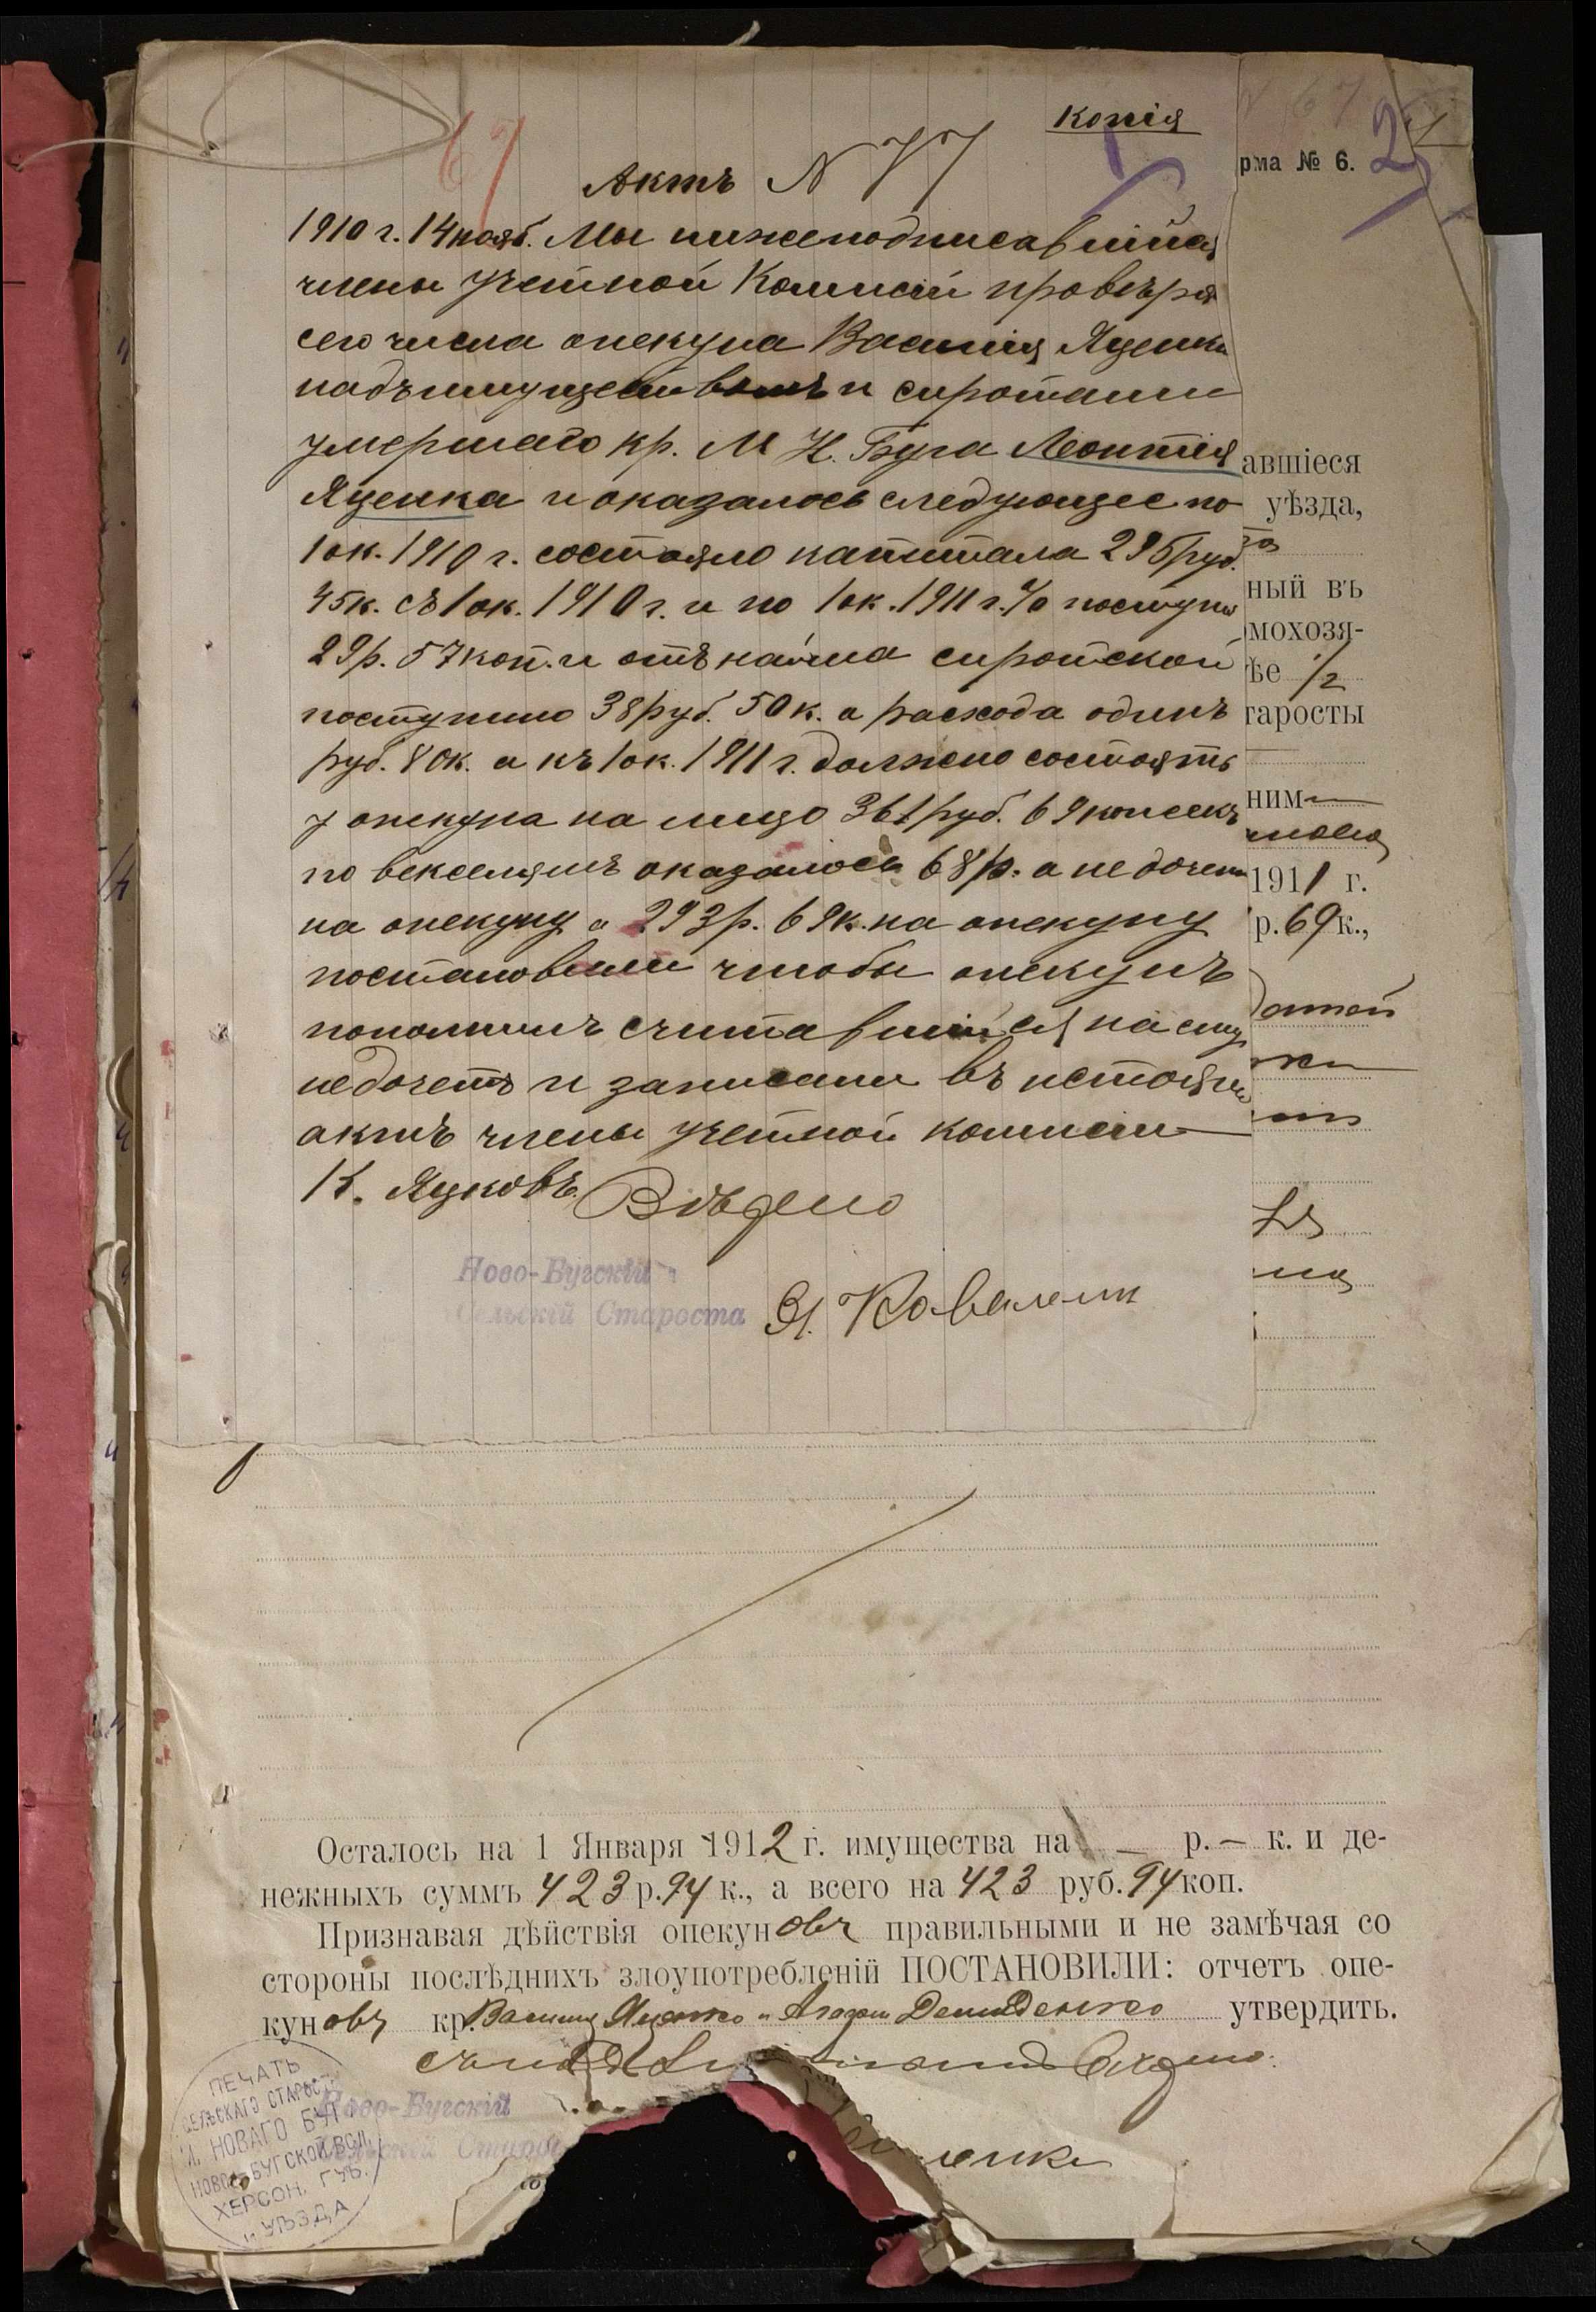 копія
67
Актъ N 77
рма № 6.
2
1910 г. 14 нояб. Мы нижеподписавшійся
члены учетной Комисіи провѣря
сего числа опекуна Василія Яценка
надъ имуществомъ и сиротами
умершаго кр. М Н. Буга Леонтія
Яценка и оказалось следующее по
1 ок. 1910 г. состояло капитала 295 руб.
45к. съ 1 ок. 1910 г. и по 1 ок. 1911 г. % поступи
29р. 57 коп. и отъ найма сиротской
поступило 38 руб. 50 к. а расхода одинъ
руб. 80к. а къ 1 ок. 1911 г. должно состоять
у опекуна на лицо 361 руб. 69 копеекъ
по векселямъ оказалось 68 р. а недочет
на опекуну а 293 р. 69 к. на опекуну
постановили чтобы опекунъ
пополнилъ считавшийся на ему
недочетъ и записали въ настоящ
актъ члены учетной комисіи
К. Яцковъ. Вѣдено
Ново-Бугскій
Сельскій Староста Я. Ковален
авшіеся
уѣзда,
ный въ
мохозя-
ѣе 1/2
таросты
ним
1911 г.
р. 69 к.,
Осталось на 1 Января 1912 г. имущества на — р. — к. и де-
нежныхъ суммъ 423 р. 94 к., а всего на 423 руб. 94 коп.
Признавая дѣйствія опекуновъ правильными и не замѣчая со
стороны послѣднихъ злоупотребленій ПОСТАНОВИЛИ: отчетъ опе-
куновъ кр. Василія Яценко и Демиденко утвердить.
Ново-Бугскій
ПЕЧАТЬ
СЕЛЬСКАГО СТАРОСТЫ
М. НОВАГО БУГА
НОВО-БУГСКОЙ ВОЛ.
ХЕРСОН. ГУБ.
и УѢЗДА
енко